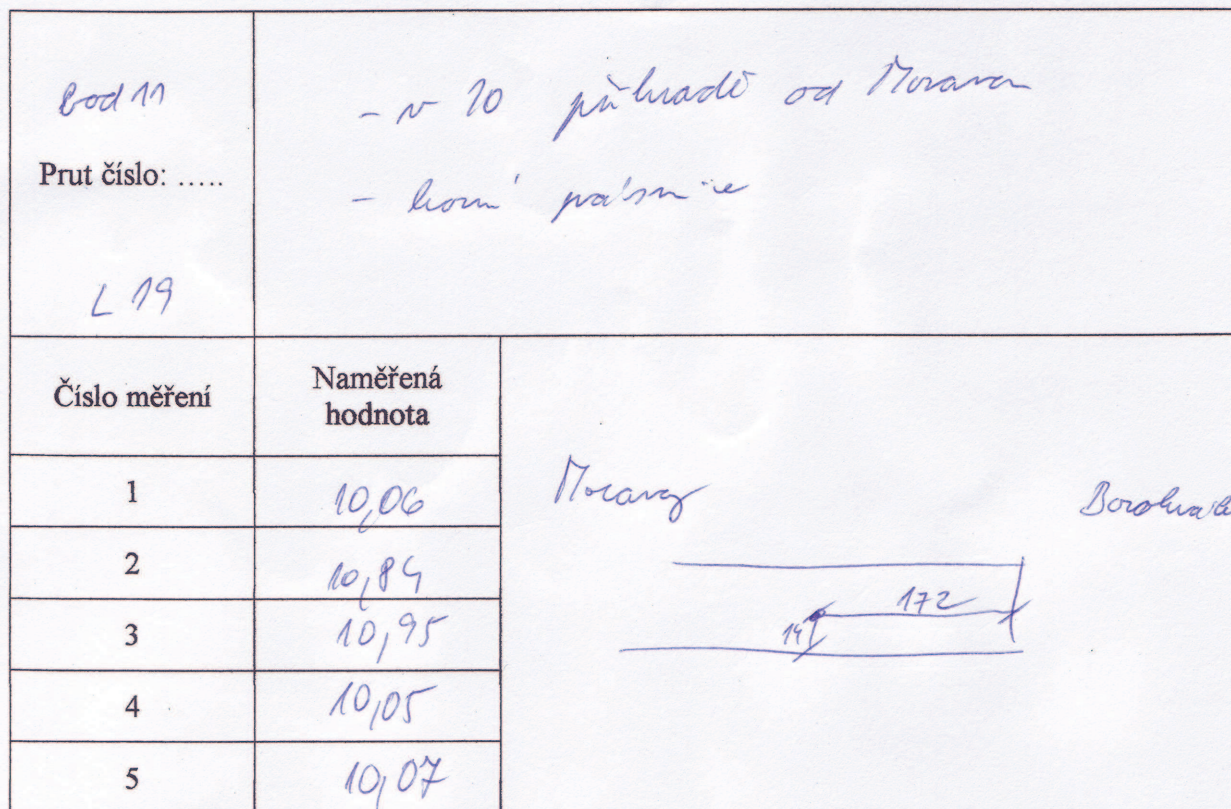 bod 11
Prut číslo: .....
L 19
- v 10 příhradě od Moravan
- horní pásnice
Číslo měření
Naměřená
hodnota
1
10,06
2
10,84
3
10,95
4
10,05
5
10,07
Moravany
172
14